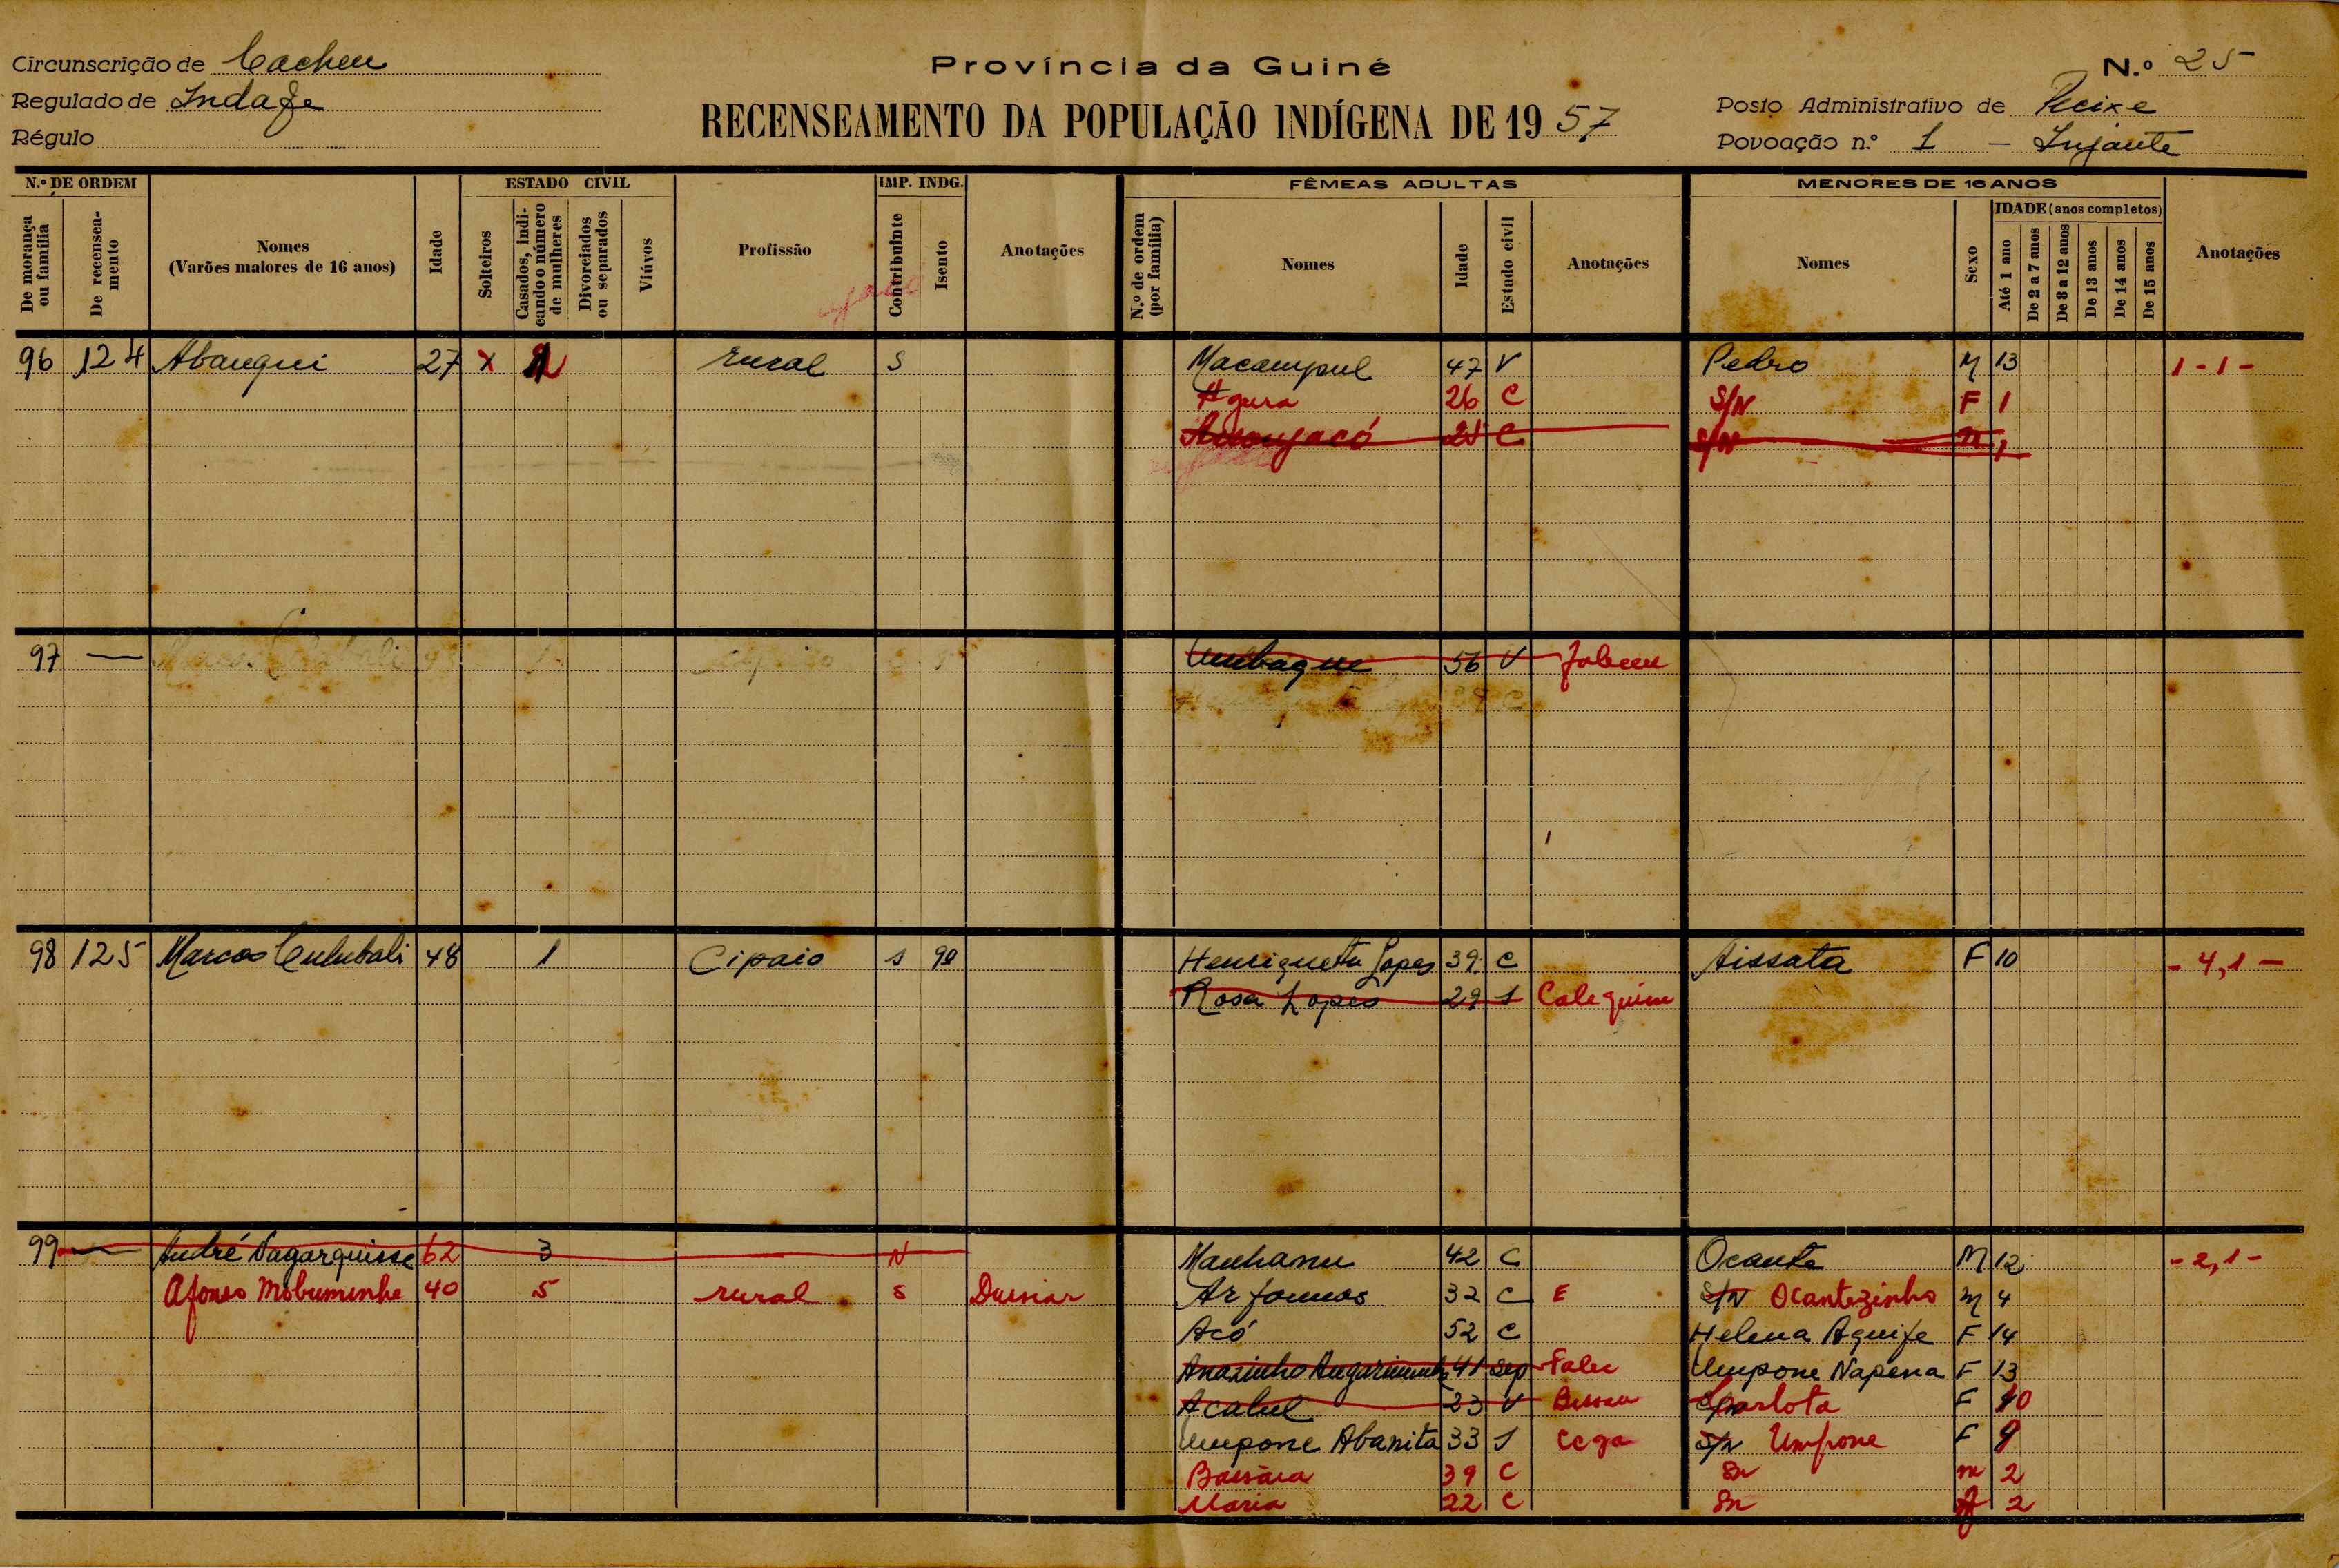 Circunscrição de Cacheu
Província da Guiné
N.º 25
Regulado de Indafe
RECENSEAMENTO DA POPULAÇÃO INDÍGENA DE 19 57
Posto Administrativo de Pecixe
Régulo
Povoação n.º 1 — Injante
N.º DE ORDEM
ESTADO CIVIL
IMP. INDG.
FÊMEAS ADULTAS
MENORES DE 16 ANOS
De morança ou família
De recenseamento
Nomes (Varões maiores de 16 anos)
Idade
Solteiros
Casados, indicando o número de mulheres
Divorciados ou separados
Viúvos
Profissão
Contribuinte
Isento
Anotações
N.º de ordem (por família)
Nomes
Idade
Estado civil
Anotações
Nomes
Sexo
IDADE (anos completos)
Até 1 ano
De 2 a 7 anos
De 8 a 12 anos
De 13 anos
De 14 anos
De 15 anos
Anotações
96 124 Abangui 27 x rural S Macampul 47 V Pedro M 13 1-1-
Agura 26 C S/N F 1
C S/N 1
97 — Umbaque 56 V Faleceu
98 125 Marcos Culubali 48 1 Cipaio S 90 Henriqueta Lopes 39 C Aissata F 10 - 4,1 -
Rosa Lopes 29 S Calequisse
99 — André Nagarquisse 62 3 N Manhanu 42 C Ocante M 12 - 2,1 -
Afonso Mobuminhe 40 5 rural S 32 C E S/N Ocantezinho M 4
Acó 52 C Helena Aquife F 14
41 Sep Falec Umpone Napena F 13
Acalul 23 V Bissau Carlota F 10
Umpone Abanita 33 S Cega S/N Umpone F 9
39 C Sn m 2
Maria 22 C Sn 2